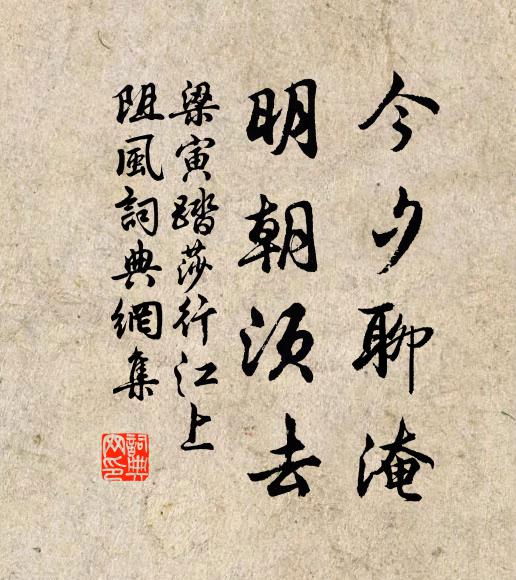 今夕聊淹
明朝須去
梁寅踏莎行江上
阻風詞典網集
詞典
网印